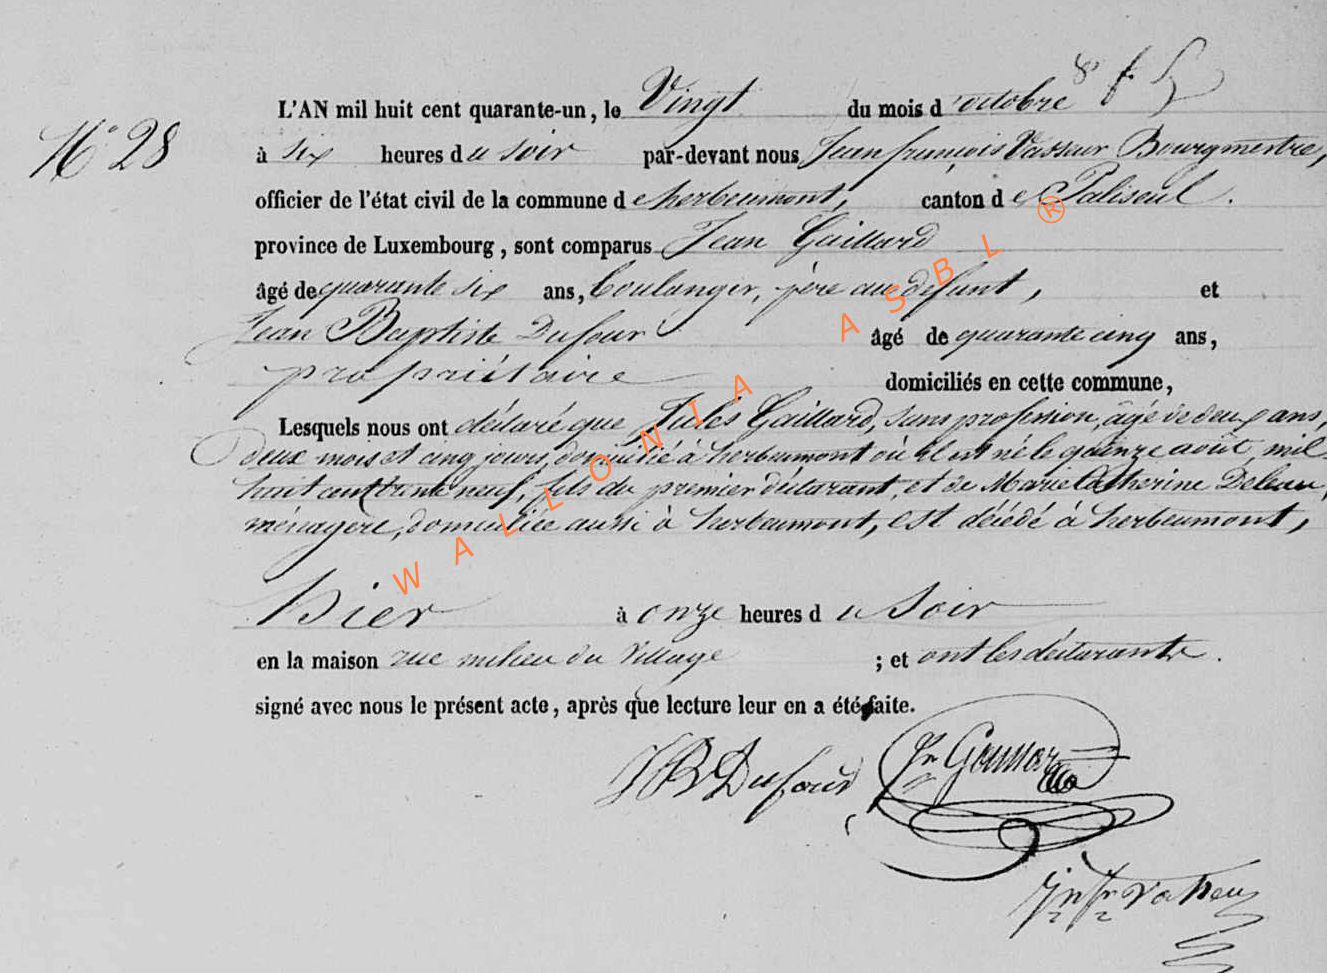 8bre
N° 28
L'AN mil huit cent quarante-un, le Vingt du mois d'octobre
à six heures du soir par-devant nous Jean françois Vasseur Bourgmestre,
officier de l'état civil de la commune de herbeumont, canton de Paliseul.
province de Luxembourg, sont comparus Jean Gaillard
âgé de quarante six ans, boulanger, père au defunt, et
Jean Baptiste Dufour âgé de quarante cinq ans,
propriétaire domiciliés en cette commune,
Lesquels nous ont déclaré que Jules Gaillard, sans profession, âgé de deux ans,
deux mois et cinq jours, domicilié à herbeumont où il est né le quinze août mil
huit cent trente neuf, fils du premier déclarant, et de Marie Catherine
ménagère, domiciliée aussi à herbeumont, est décédé à herbeumont,
hier à onze heures du soir
en la maison rue milieu du Village ; et ont les déclarants.
signé avec nous le présent acte, après que lecture leur en a été faite.
JB Dufour
WALLONIA ASBL ®